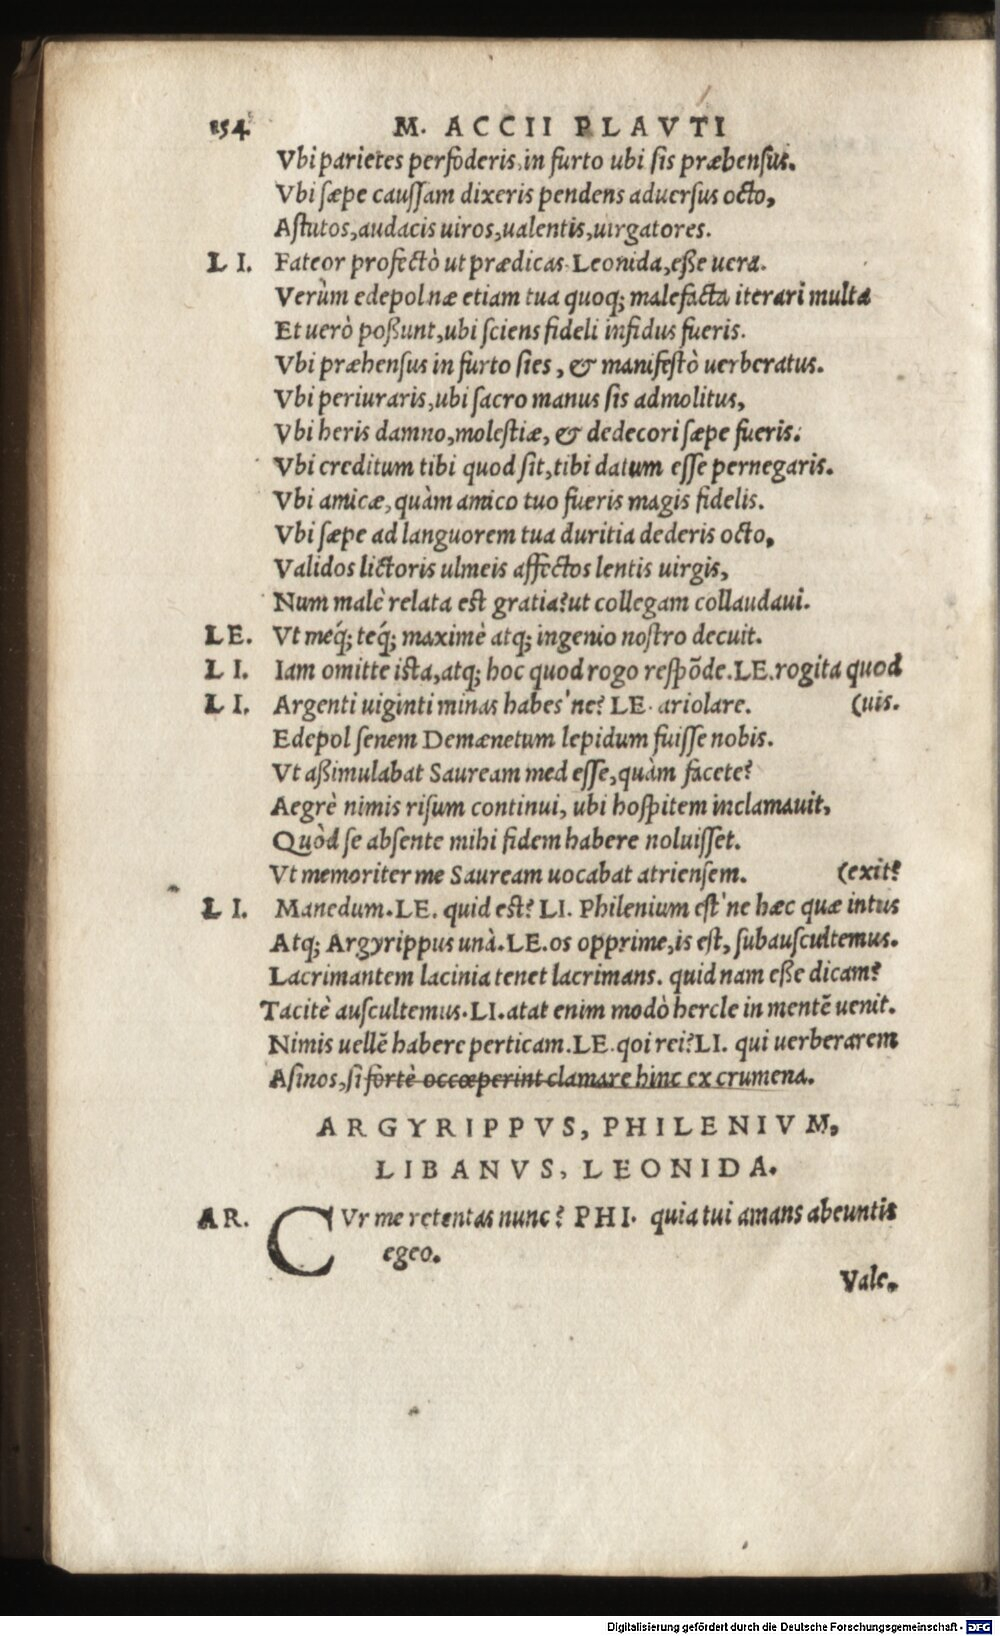 154 M. ACCII PLAVTI
Vbi parietes perfoderis, in furto ubi sis præhensus.
Vbi sæpe caussam dixeris pendens aduersus octo,
Astutos, audacis uiros, ualentis, uirgatores.
LI. Fateor profectò ut prædicas Leonida, eße uera.
Verùm edepol næ etiam tua quoq; malefacta iterari multa
Et uerò poßunt, ubi sciens fideli infidus fueris.
Vbi præhensus in furto sies, & manifestò uerberatus.
Vbi periuraris, ubi sacro manus sis admolitus,
Vbi heris damno, molestiæ, & dedecori sæpe fueris.
Vbi creditum tibi quod sit, tibi datum esse pernegaris.
Vbi amicæ, quàm amico tuo fueris magis fidelis.
Vbi sæpe ad languorem tua duritia dederis octo,
Validos lictoris ulmeis affectos lentis uirgis,
Num malè relata est gratia? ut collegam collaudaui.
LE. Vt meq́; teq́; maximè atq; ingenio nostro decuit.
LI. Iam omitte ista, atq; hoc quod rogo respõde. LE. rogita quod
LI. Argenti uiginti minas habes'ne? LE. ariolare. (uis.
Edepol senem Demænetum lepidum fuisse nobis.
Vt aßimulabat Sauream med esse, quàm facete?
Aegrè nimis risum continui, ubi hospitem inclamauit,
Quòd se absente mihi fidem habere noluisset.
Vt memoriter me Sauream uocabat atriensem. (exit?
LI. Manedum. LE. quid est? LI. Philenium est'ne hæc quæ intus
Atq; Argyrippus unà. LE. os opprime, is est, subauscultemus.
Lacrimantem lacinia tenet lacrimans. quid nam eße dicam?
Tacitè auscultemus. LI. atat enim modò hercle in mentẽ uenit.
Nimis uellẽ habere perticam. LE. qoi rei? LI. qui uerberarem
Asinos, si fortè occœperint clamare hinc ex crumena.
ARGYRIPPVS, PHILENIVM,
LIBANVS, LEONIDA.
AR. CVr me retentas nunc? PHI. quia tui amans abeuntis
egeo.
Vale,
Digitalisierung gefördert durch die Deutsche Forschungsgemeinschaft - DFG